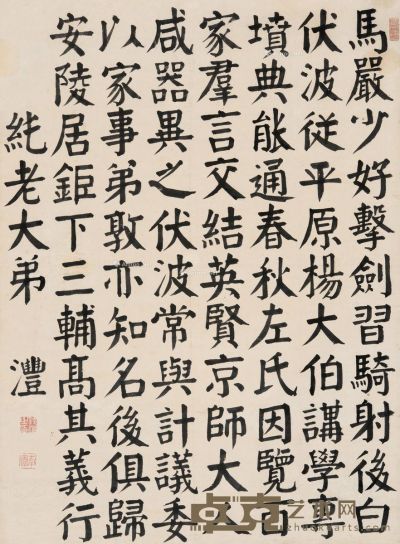 馬嚴少好擊劍習騎射後白
伏波從平原楊大伯講學
墳典能通春秋左氏因覽百
家羣言交結英賢京師大人
咸器異之伏波常與計議委
以家事弟敦亦知名後俱歸
安陵居鉅下三輔高其義行
純老大弟 灃